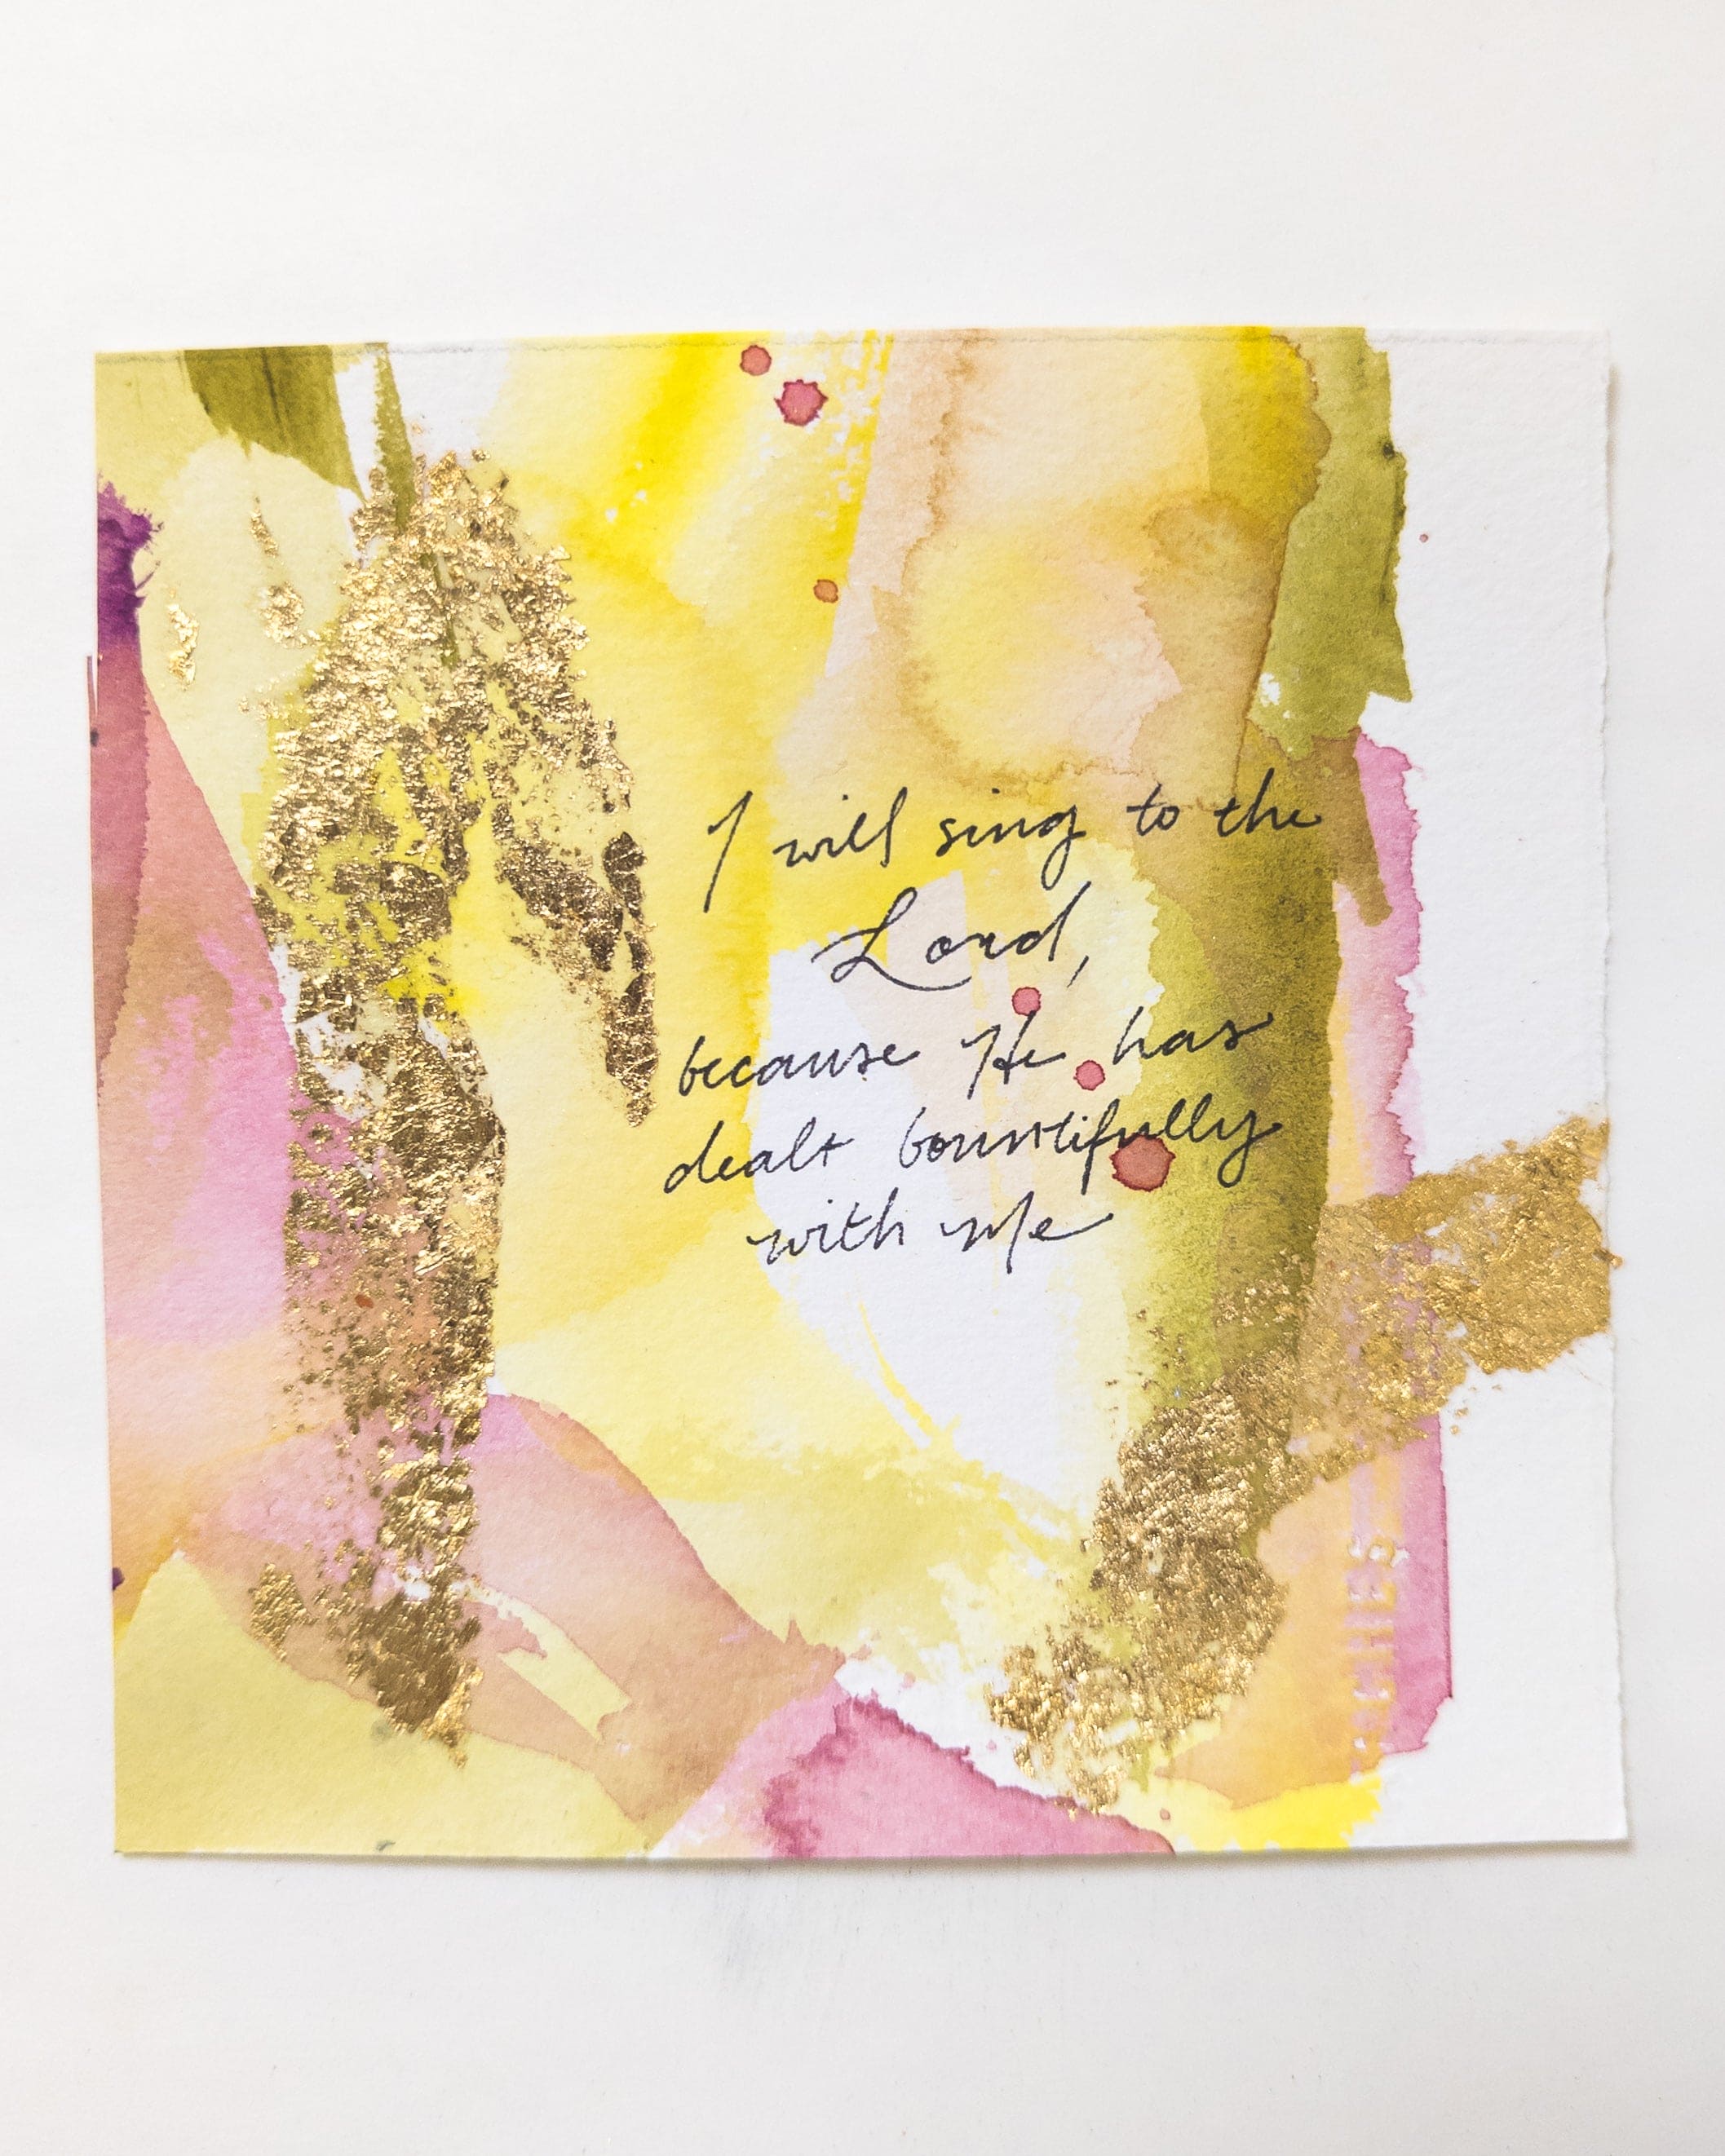 I will sing to the
Lord,
because He has
dealt bountifully
with me